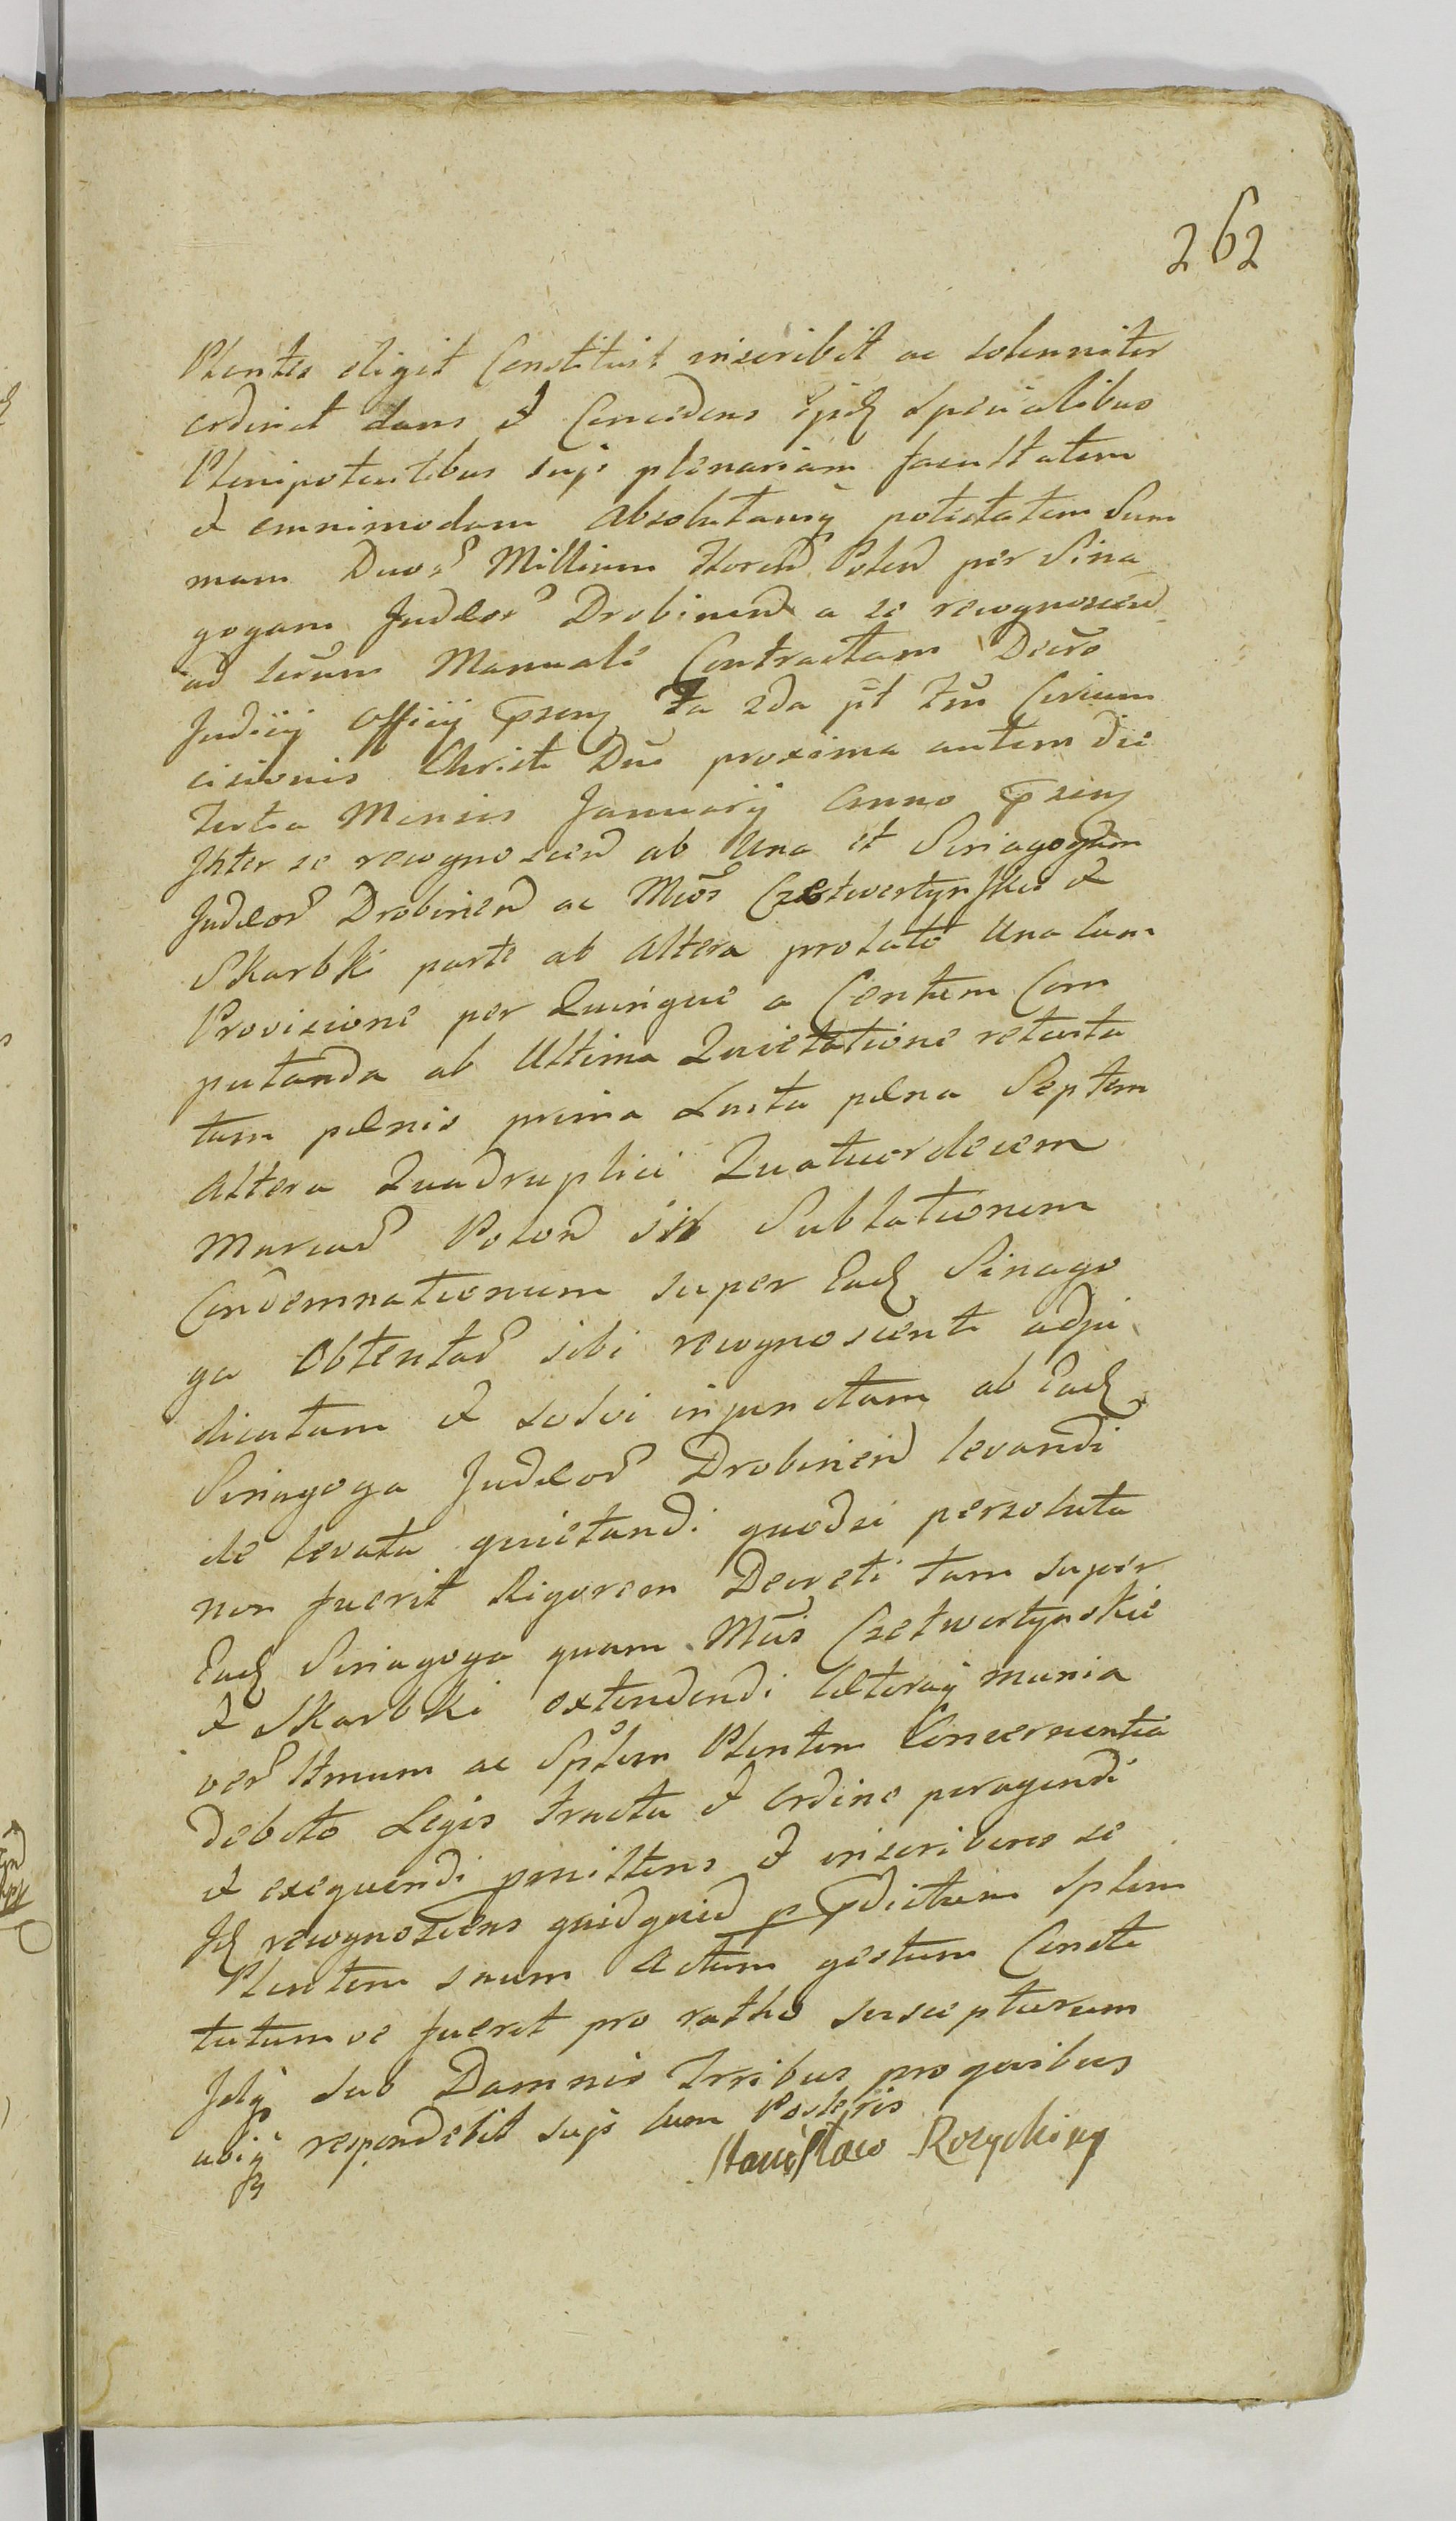 262
Plentes eligit Constituit inscribit ac solenniter
ordinat dans et Concedens ijsd Specialibus
Plenipotentibus suis plenariam facultatem
et omnimodam absolutamq potestatem Sum
mam Duor Millium floren Polon per Sina
gogam Judeor Drobinen a se recognoscen
ad Manuale Contractam Decro
Judicij Officij præn fa 2da pt Circum
cisionis Christi Dni proxima autem die
Tertia Mensis Januarij Anno præn
Inter se recognoscen ab Una et Sinagogam
Judeor Drobinen ac Mcos Czetwertynskie et
Skarbki parte ab altera prolato Una Cum
Provisione per Quinque a Centum Com
putanda ab Ultima Quietatione retenta
tum penis prima Lucta pena Septem
Altera Quadruplici Quatuordecem
Marcar Polon Sublationem
Condemnationum super Ead Sinago
ga Obtentar sibi recognoscenti adju
dicatam et solvi injunctam ab Ead
Sinagoga Judeor Drobinen levandi
de levata quietandi quodsi persoluta
non fuerit Rigorem Decreti tam super
Ead Sinagoga quam Mcis Czetwertynskie
et Skarbki extendendi Cæteraq munia
ver Itmum ac Splem Plentem Concernentia
Debito Legis tractu et ordine peragendi
et exequendi pmittens et inscribens se
Id recognoscens quidquid p pdictum Splem
Plentem suum Actum gestum Consti
tutumve fuerit pro ratho suscepturum
Idq sub Damnis Trribus pro quibus
ubiq respondebit suis cum Posteris
Stanisław Rozycki mp